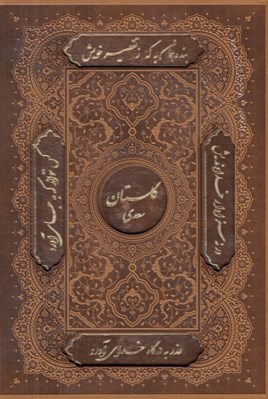 بنده همان به که ز تقصیر خویش
عذر به درگاه خدای آورد
ورنه سزاوار خداوندیش
کس نتواند که به جای آورد
گلستان
سعدی